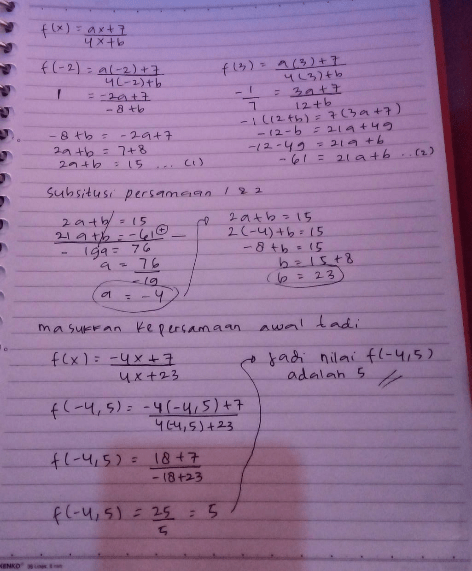 f(x) = ax+7
4x+b
f(-2) = a(-2)+7
4(-2)+b
1 = -2a+7
-8+b
-8+b = -2a+7
2a+b = 7+8
2a+b = 15 ... (1)
f(3) = a(3)+7
4(3)+b
-1/7 = 3a+7
12+b
-1(12+b) = 7(3a+7)
-12-b = 21a+49
-12-49 = 21a+b
-61 = 21a+b ..(2)
Subsitusi persamaan 1 & 2
2a+b = 15
21a+b = -61
- 19a = 76
a = 76
-19
a = -4
2a+b = 15
2(-4)+b = 15
-8+b = 15
b = 15+8
b = 23
masukkan ke persamaan awal tadi
f(x) = -4x+7
4x+23
f(-4,5) = -4(-4,5)+7
4(-4,5)+23
f(-4,5) = 18+7
-18+23
f(-4,5) = 25 = 5
5
Jadi nilai f(-4,5)
adalah 5